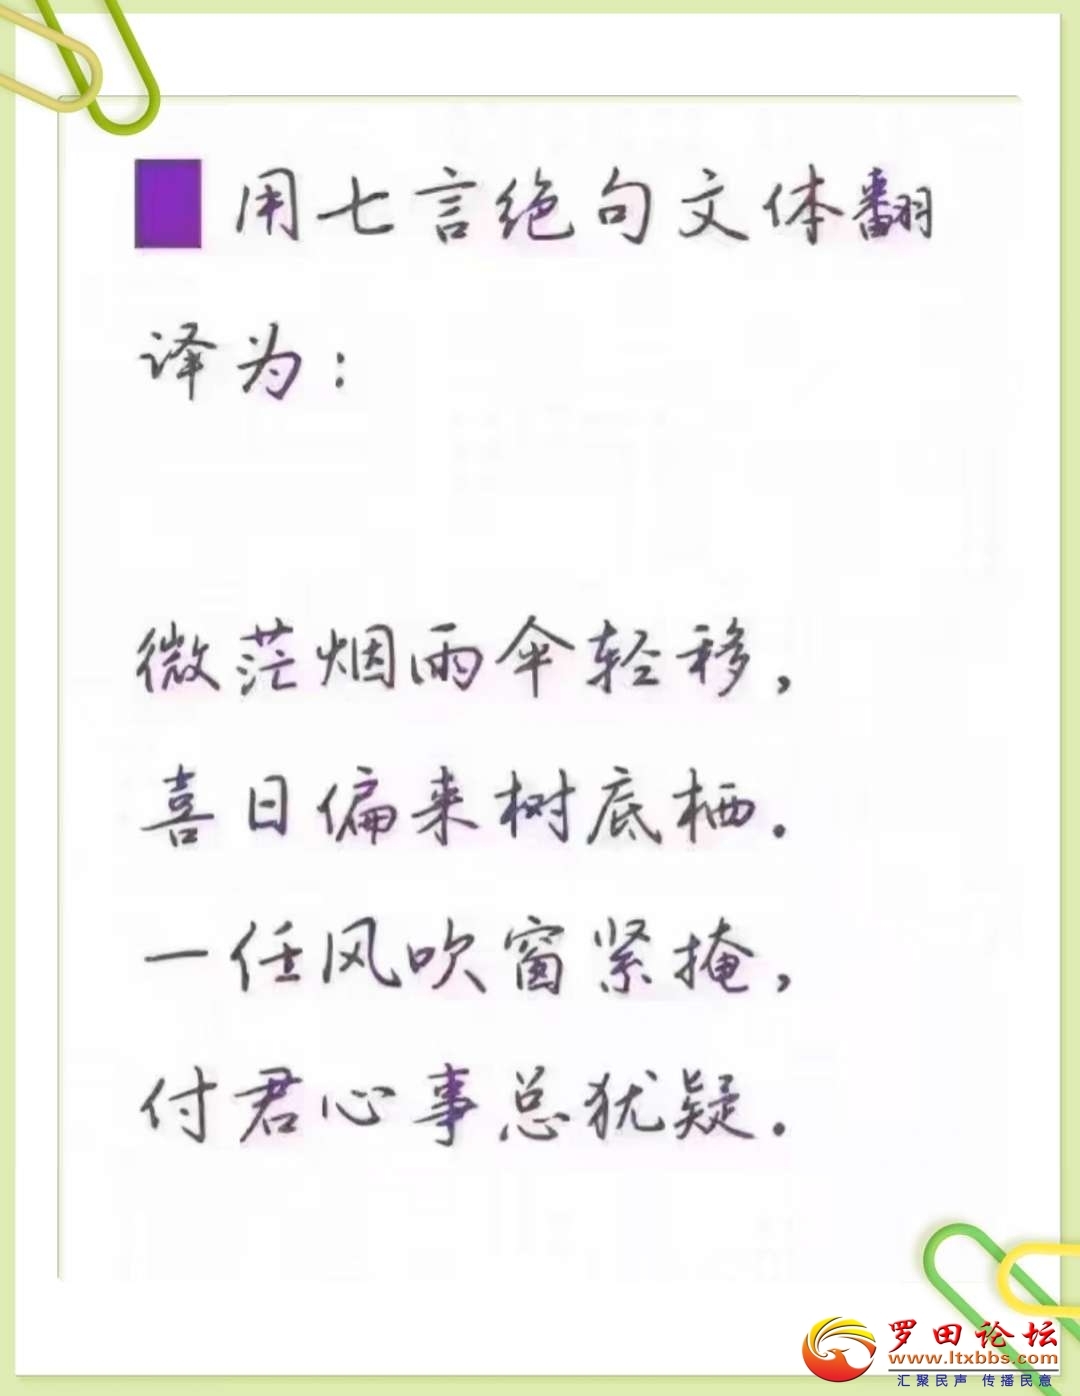 用七言绝句文体翻
译为：
微茫烟雨伞轻移，
喜日偏来树底栖．
一任风吹窗紧掩，
付君心事总犹疑．
罗田论坛
www.ltxbbs.com
汇聚民声 传播民意